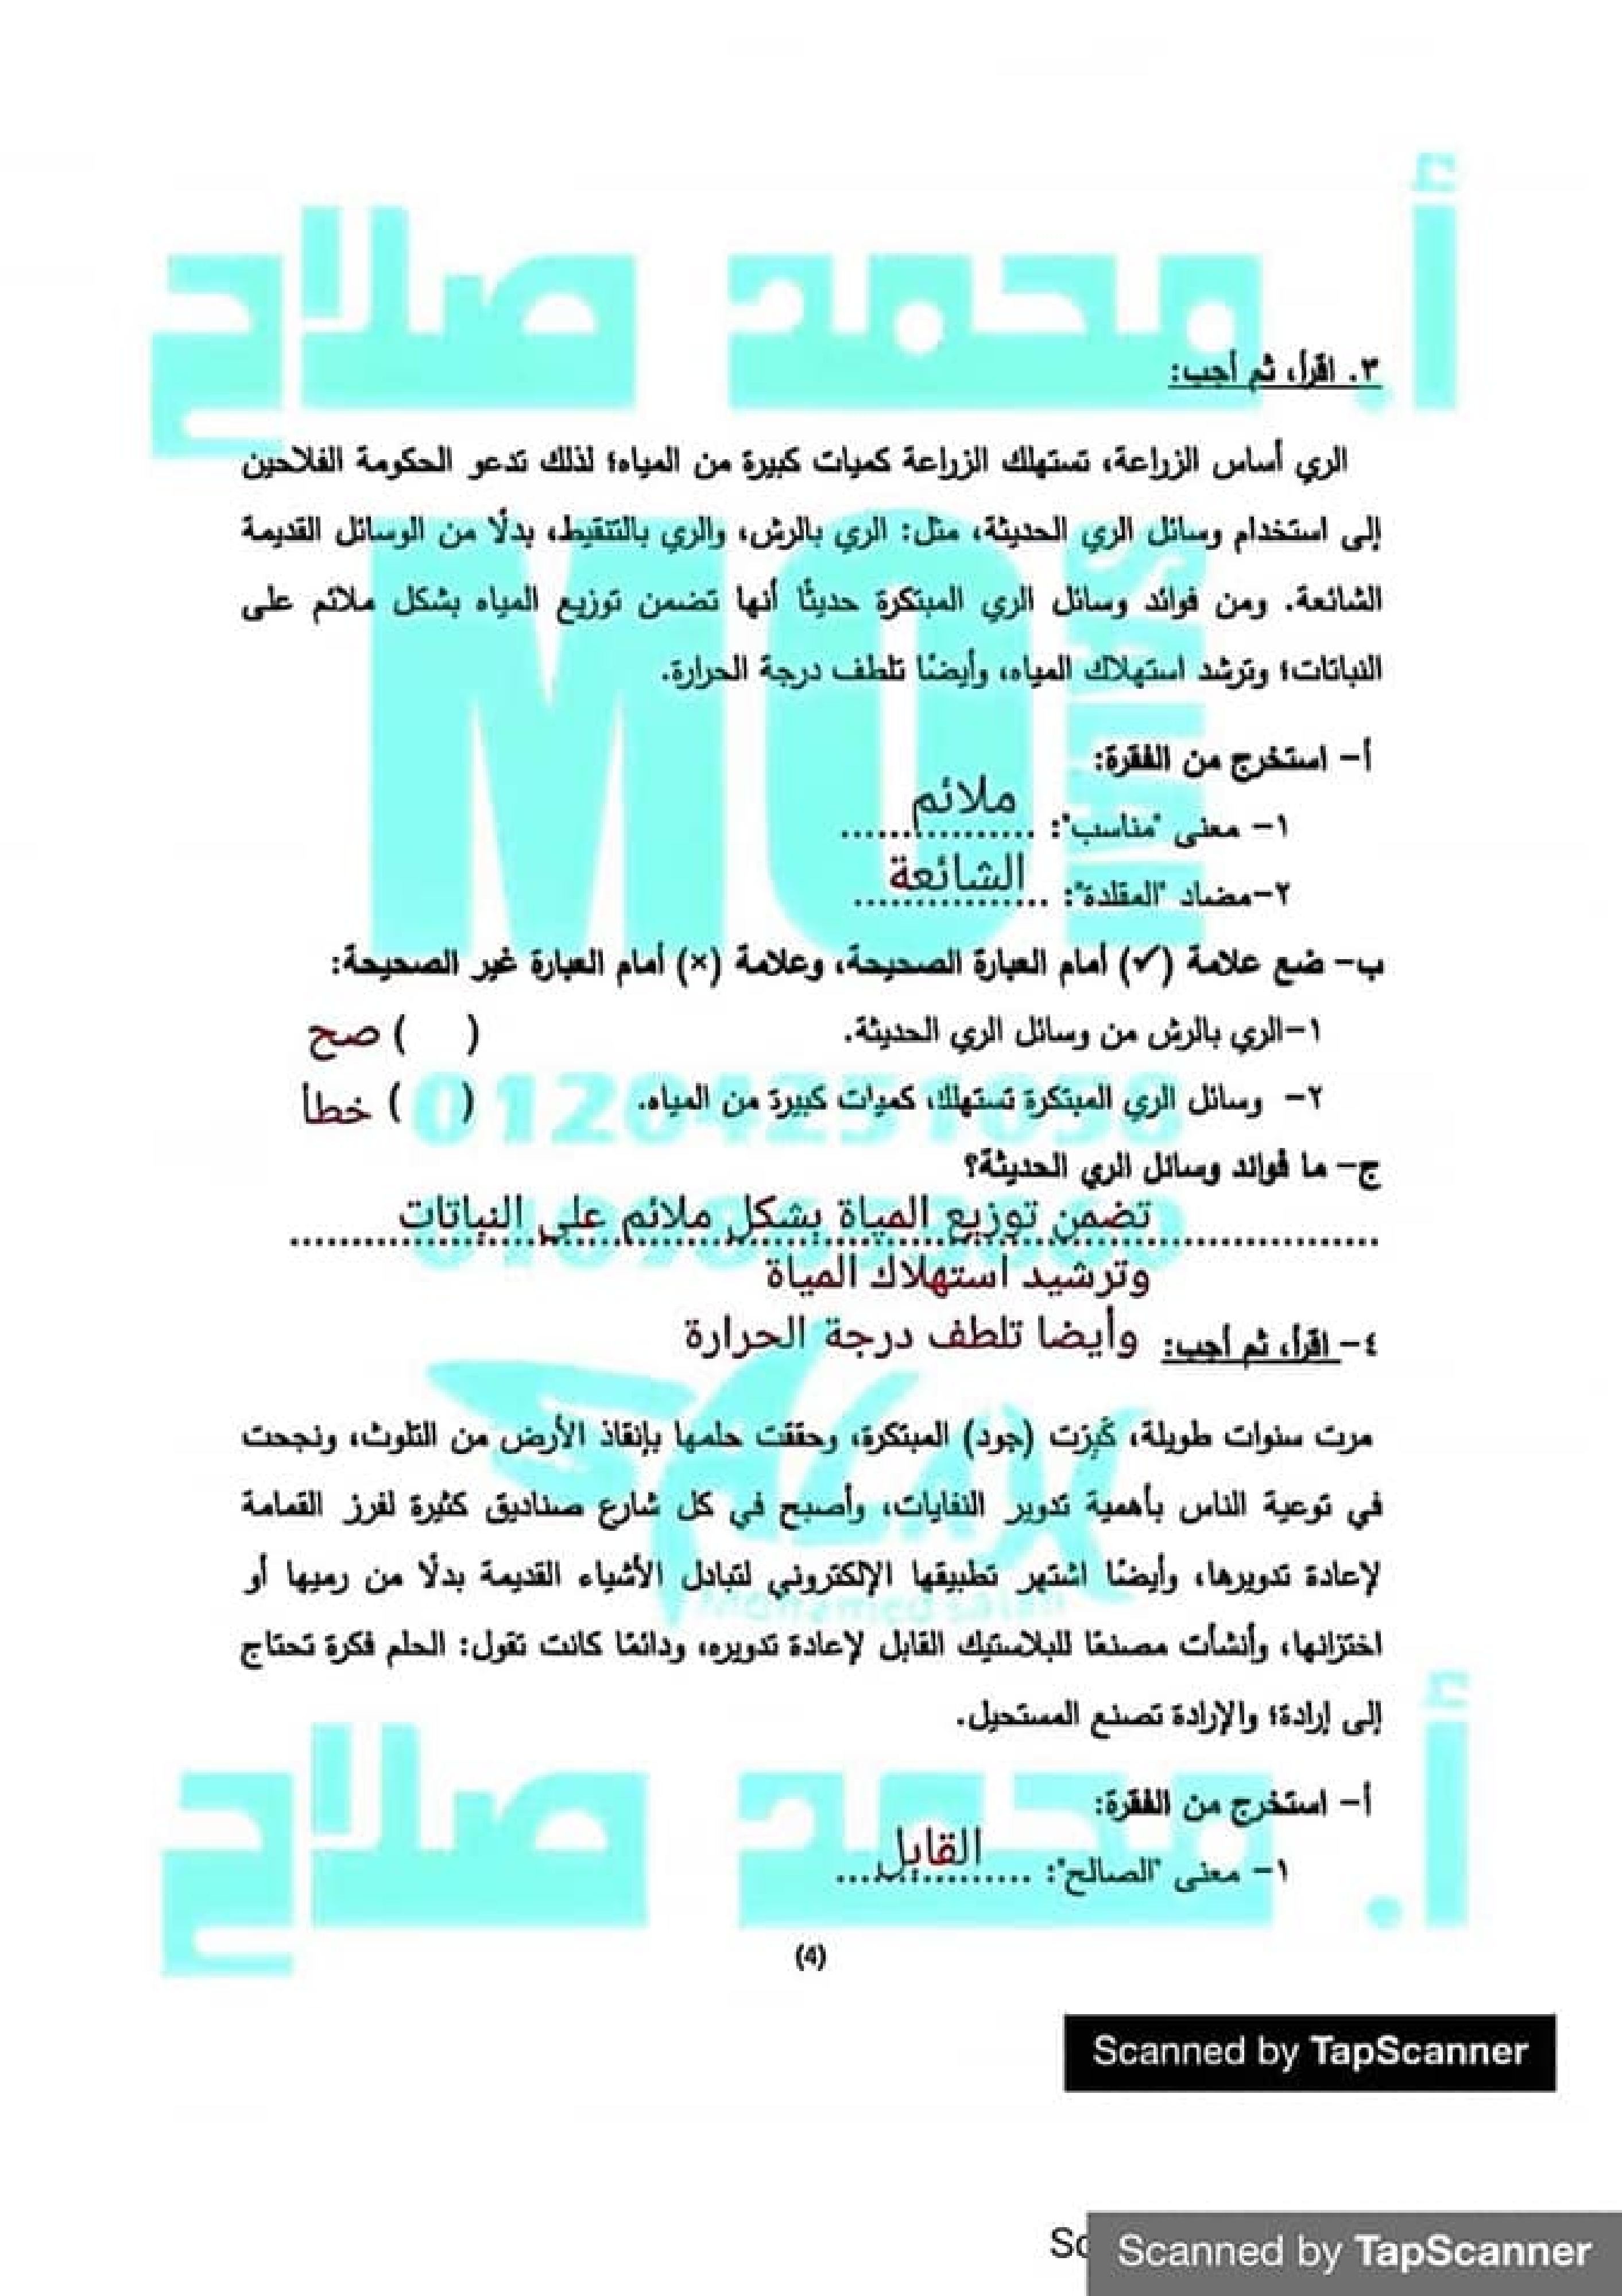 أ. محمد صلاح
٣. اقرأ، ثم أجب:
الري أساس الزراعة، تستهلك الزراعة كميات كبيرة من المياه؛ لذلك تدعو الحكومة الفلاحين
إلى استخدام وسائل الري الحديثة، مثل: الري بالرش، والري بالتنقيط، بدلًا من الوسائل القديمة
الشائعة. ومن فوائد وسائل الري المبتكرة حديثًا أنها تضمن توزيع المياه بشكل ملائم على
النباتات؛ وترشد استهلاك المياه، وأيضًا تلطف درجة الحرارة.
أ- استخرج من الفقرة:
١- معنى "مناسب": ................ ملائم
٢-مضاد "المقلدة": ................ الشائعة
ب- ضع علامة (✓) أمام العبارة الصحيحة، وعلامة (×) أمام العبارة غير الصحيحة:
١-الري بالرش من وسائل الري الحديثة. ( ) صح
٢- وسائل الري المبتكرة تستهلك كميات كبيرة من المياه. ( ) خطأ
ج- ما فوائد وسائل الري الحديثة؟
تضمن توزيع المياة بشكل ملائم على النباتات
وترشيد استهلاك المياة
وأيضا تلطف درجة الحرارة
٤- اقرأ، ثم أجب:
مرت سنوات طويلة، كَبِرَت (جود) المبتكرة، وحققت حلمها بإنقاذ الأرض من التلوث، ونجحت
في توعية الناس بأهمية تدوير النفايات، وأصبح في كل شارع صناديق كثيرة لفرز القمامة
لإعادة تدويرها، وأيضًا اشتهر تطبيقها الإلكتروني لتبادل الأشياء القديمة بدلًا من رميها أو
اختزانها، وأنشأت مصنعًا للبلاستيك القابل لإعادة تدويره، ودائمًا كانت تقول: الحلم فكرة تحتاج
إلى إرادة؛ والإرادة تصنع المستحيل.
أ- استخرج من الفقرة:
١- معنى "الصالح": ................ القابل
أ. محمد صلاح
(4)
Scanned by TapScanner
Scanned by TapScanner